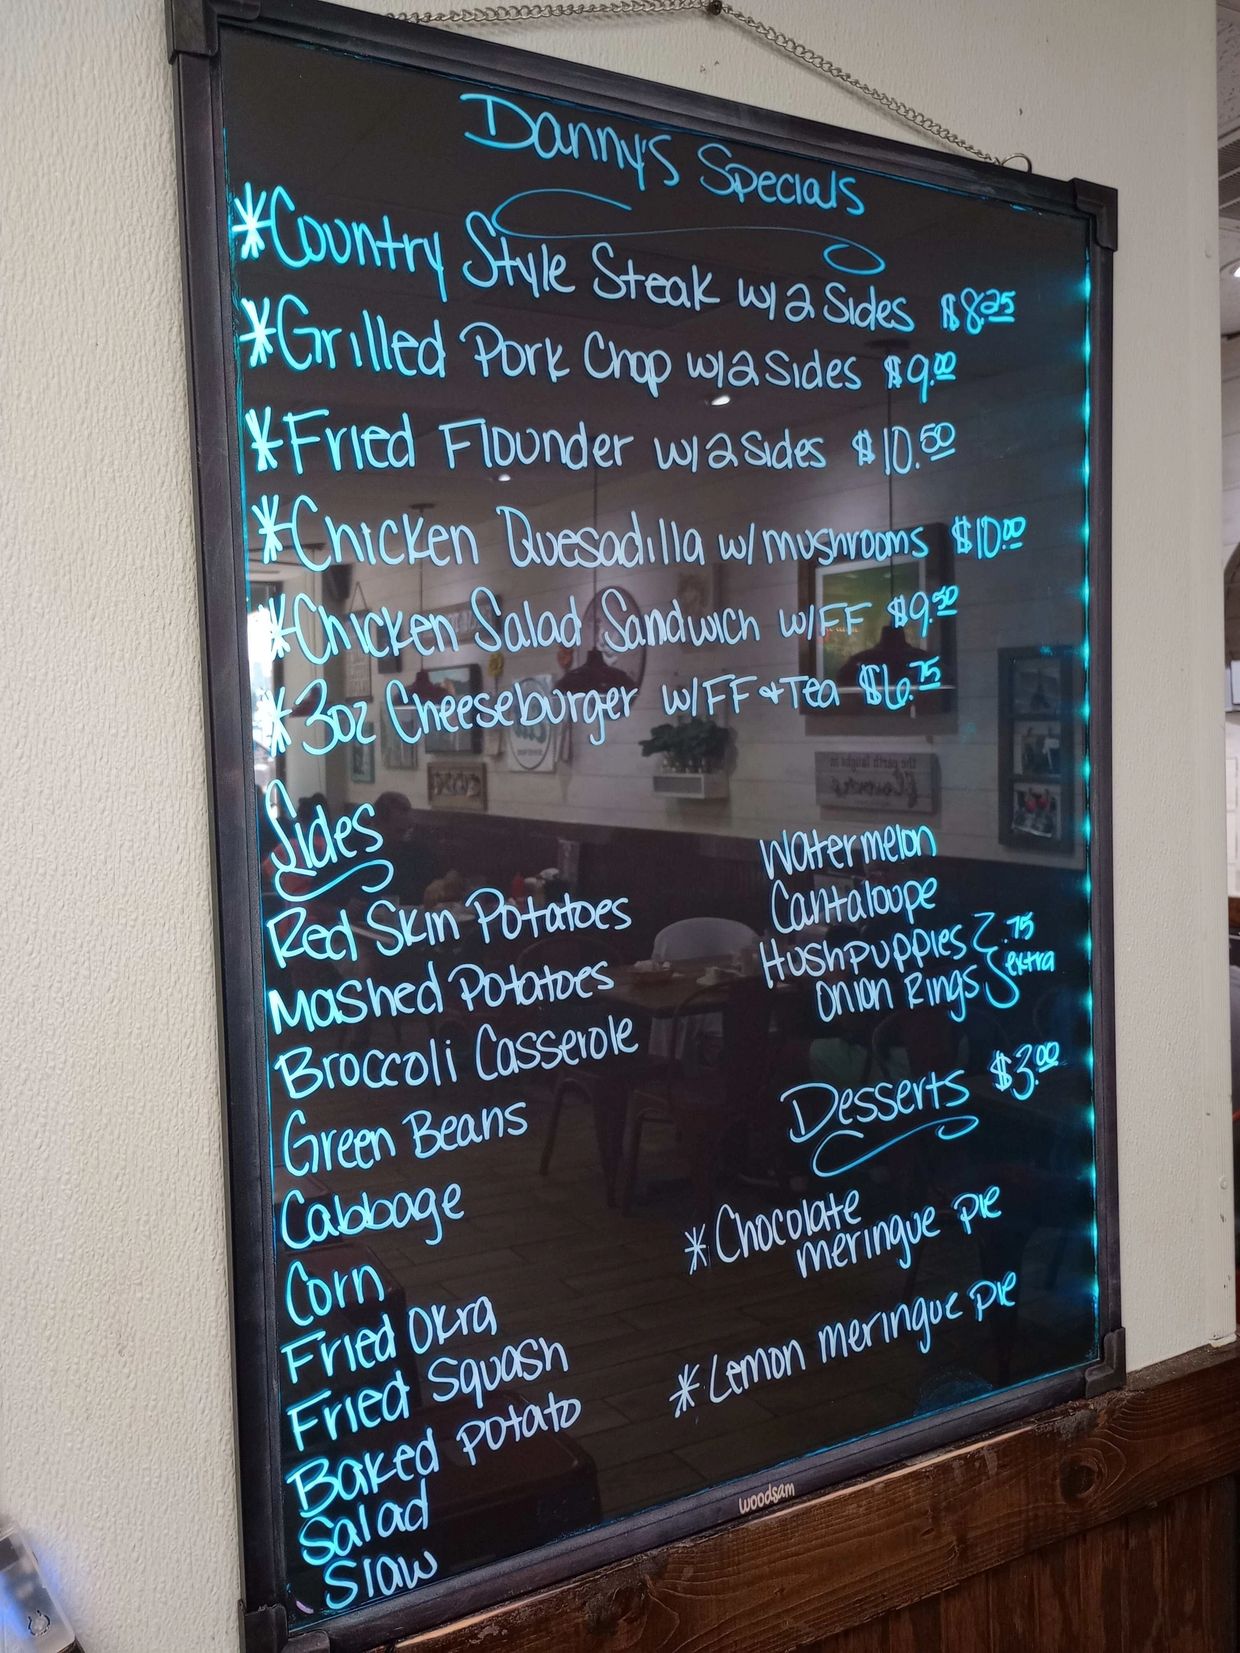 Danny's Specials
*Country Style Steak w/2 Sides $8.25
*Grilled Pork Chop w/2 Sides $9.00
*Fried Flounder w/2 Sides $10.50
*Chicken Quesadilla w/mushrooms $10.00
*Chicken Salad Sandwich w/FF $9.50
*3oz Cheeseburger w/FF + Tea $6.75
Sides
Red Skin Potatoes
Mashed Potatoes
Broccoli Casserole
Green Beans
Cabbage
Corn
Fried Okra
Fried Squash
Baked Potato
Salad
Slaw
Watermelon
Cantaloupe
Hushpuppies
Onion Rings
.75
extra
Desserts $3.00
*Chocolate
meringue pie
*Lemon meringue pie
woodsam